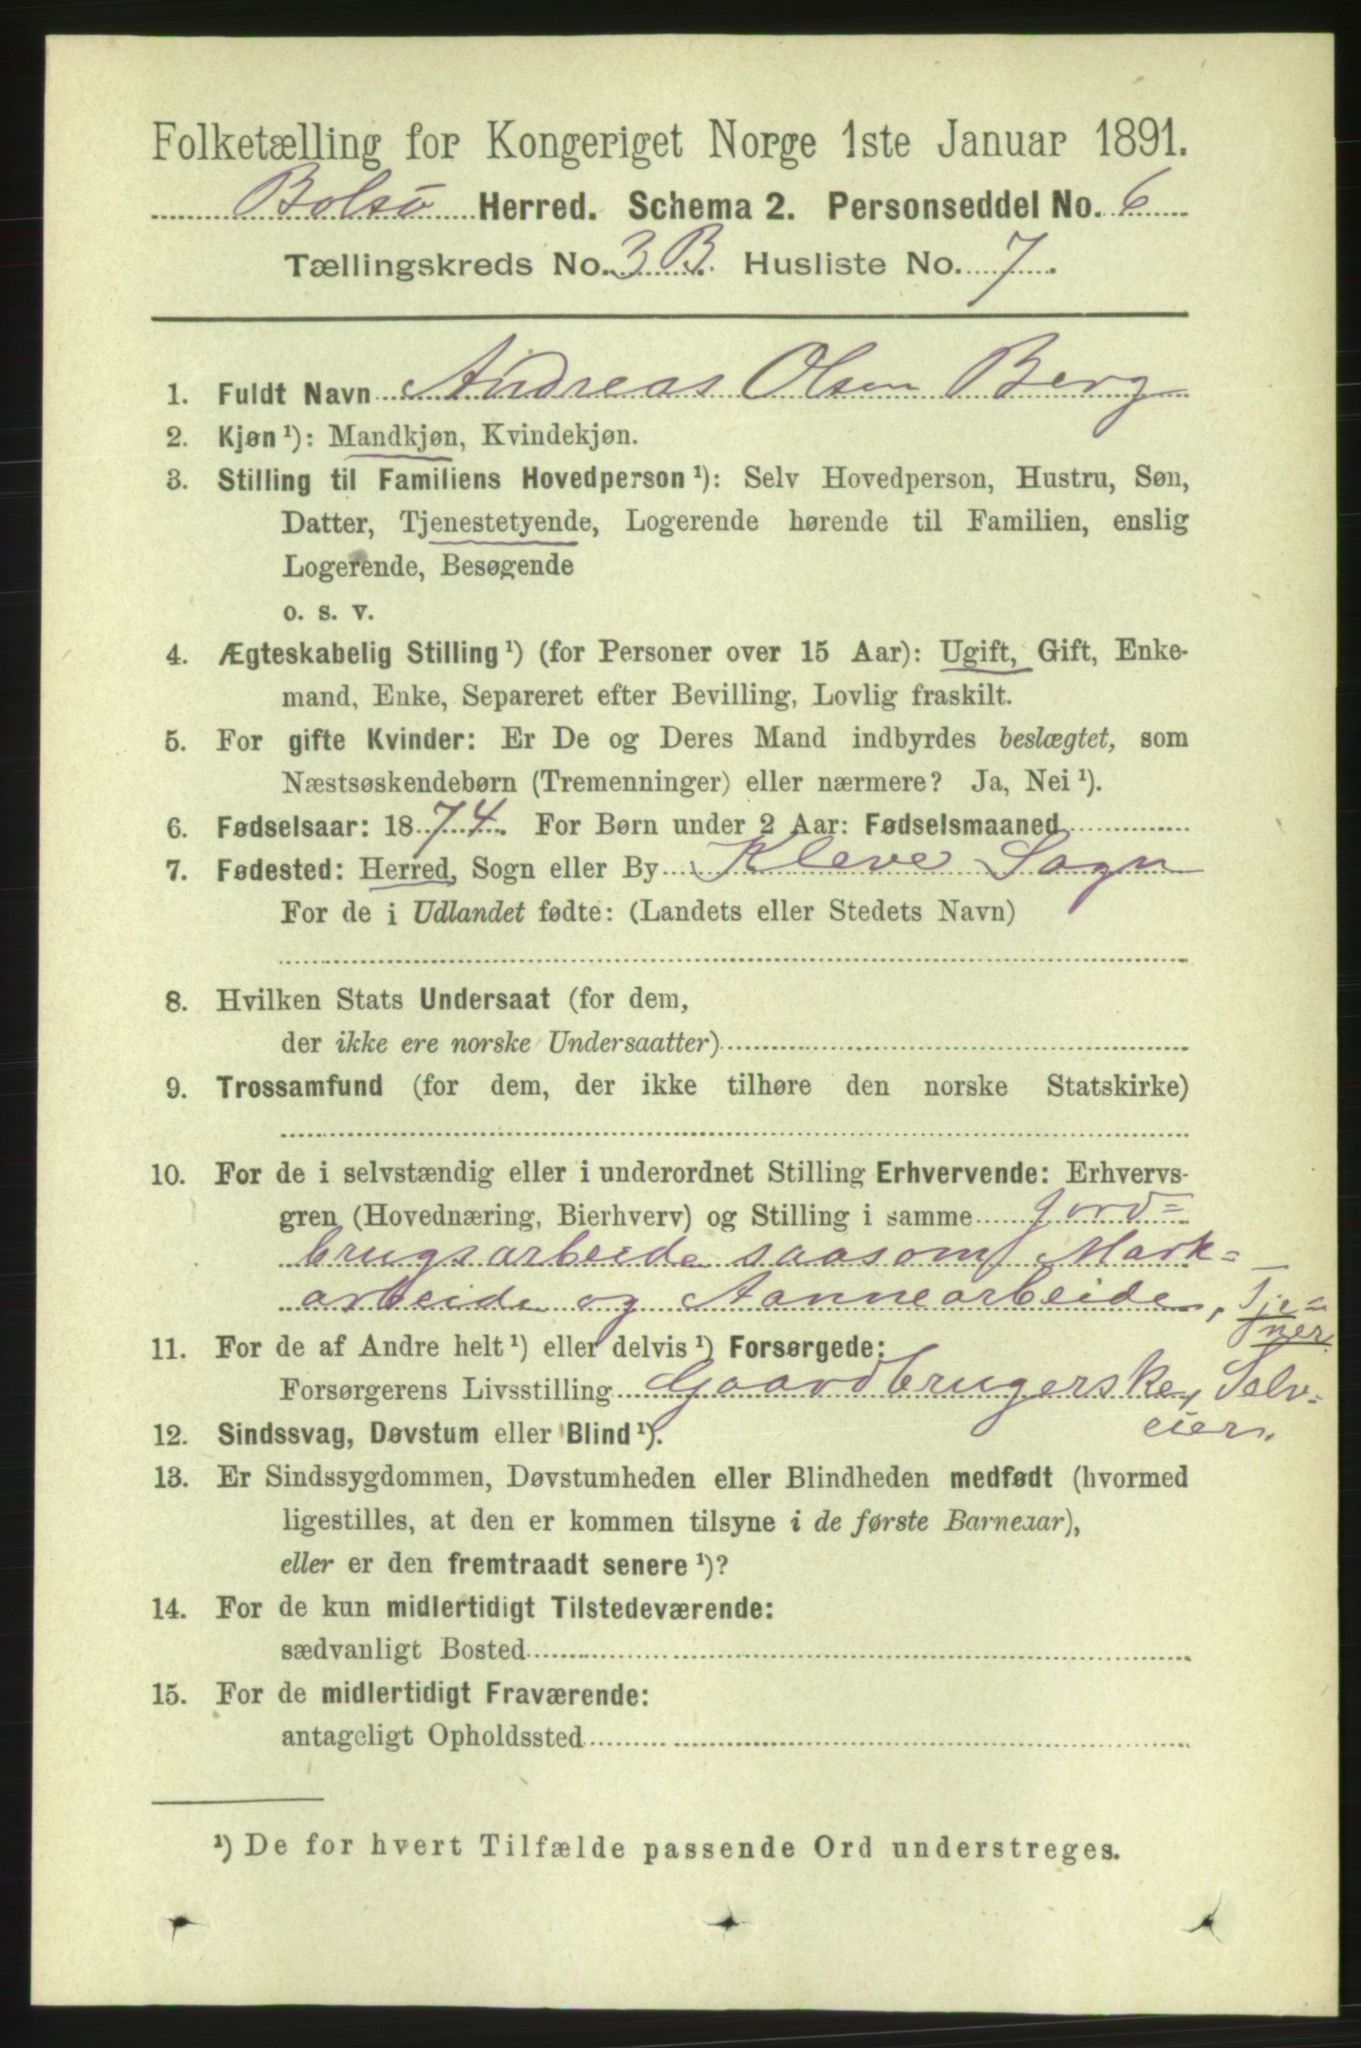 Folketælling for Kongeriget Norge 1ste Januar 1891.
Bolsø Herred. Schema 2. Personseddel No. 6
Tællingskreds No. 3 B. Husliste No. 7.
1. Fuldt Navn Andreas Olsen Berg
2. Kjøn¹): Mandkjøn, Kvindekjøn.
3. Stilling til Familiens Hovedperson¹): Selv Hovedperson, Hustru, Søn,
Datter, Tjenestetyende, Logerende hørende til Familien, enslig
Logerende, Besøgende
o. s. v.
4. Ægteskabelig Stilling¹) (for Personer over 15 Aar): Ugift, Gift, Enke-
mand, Enke, Separeret efter Bevilling, Lovlig fraskilt.
5. For gifte Kvinder: Er De og Deres Mand indbyrdes beslægtet, som
Næstsøskendebørn (Tremenninger) eller nærmere? Ja, Nei¹).
6. Fødselsaar: 1874. For Børn under 2 Aar: Fødselsmaaned
7. Fødested: Herred, Sogn eller By Kleve Sogn
For de i Udlandet fødte: (Landets eller Stedets Navn)
8. Hvilken Stats Undersaat (for dem,
der ikke ere norske Undersaatter)
9. Trossamfund (for dem, der ikke tilhøre den norske Statskirke)
10. For de i selvstændig eller i underordnet Stilling Erhvervende: Erhvervs-
gren (Hovednæring, Bierhverv) og Stilling i samme Jord=
brugsarbeide saasom Mark=
arbeide og Aannearbeide, Tje=
ner.
11. For de af Andre helt¹) eller delvis¹) Forsørgede:
Forsørgerens Livsstilling Gaardbrugerske, Selv=
eier.
12. Sindssvag, Døvstum eller Blind¹).
13. Er Sindssygdommen, Døvstumheden eller Blindheden medfødt (hvormed
ligestilles, at den er kommen tilsyne i de første Barneaar),
eller er den fremtraadt senere¹)?
14. For de kun midlertidigt Tilstedeværende:
sædvanligt Bosted
15. For de midlertidigt Fraværende:
antageligt Opholdssted
¹) De for hvert Tilfælde passende Ord understreges.